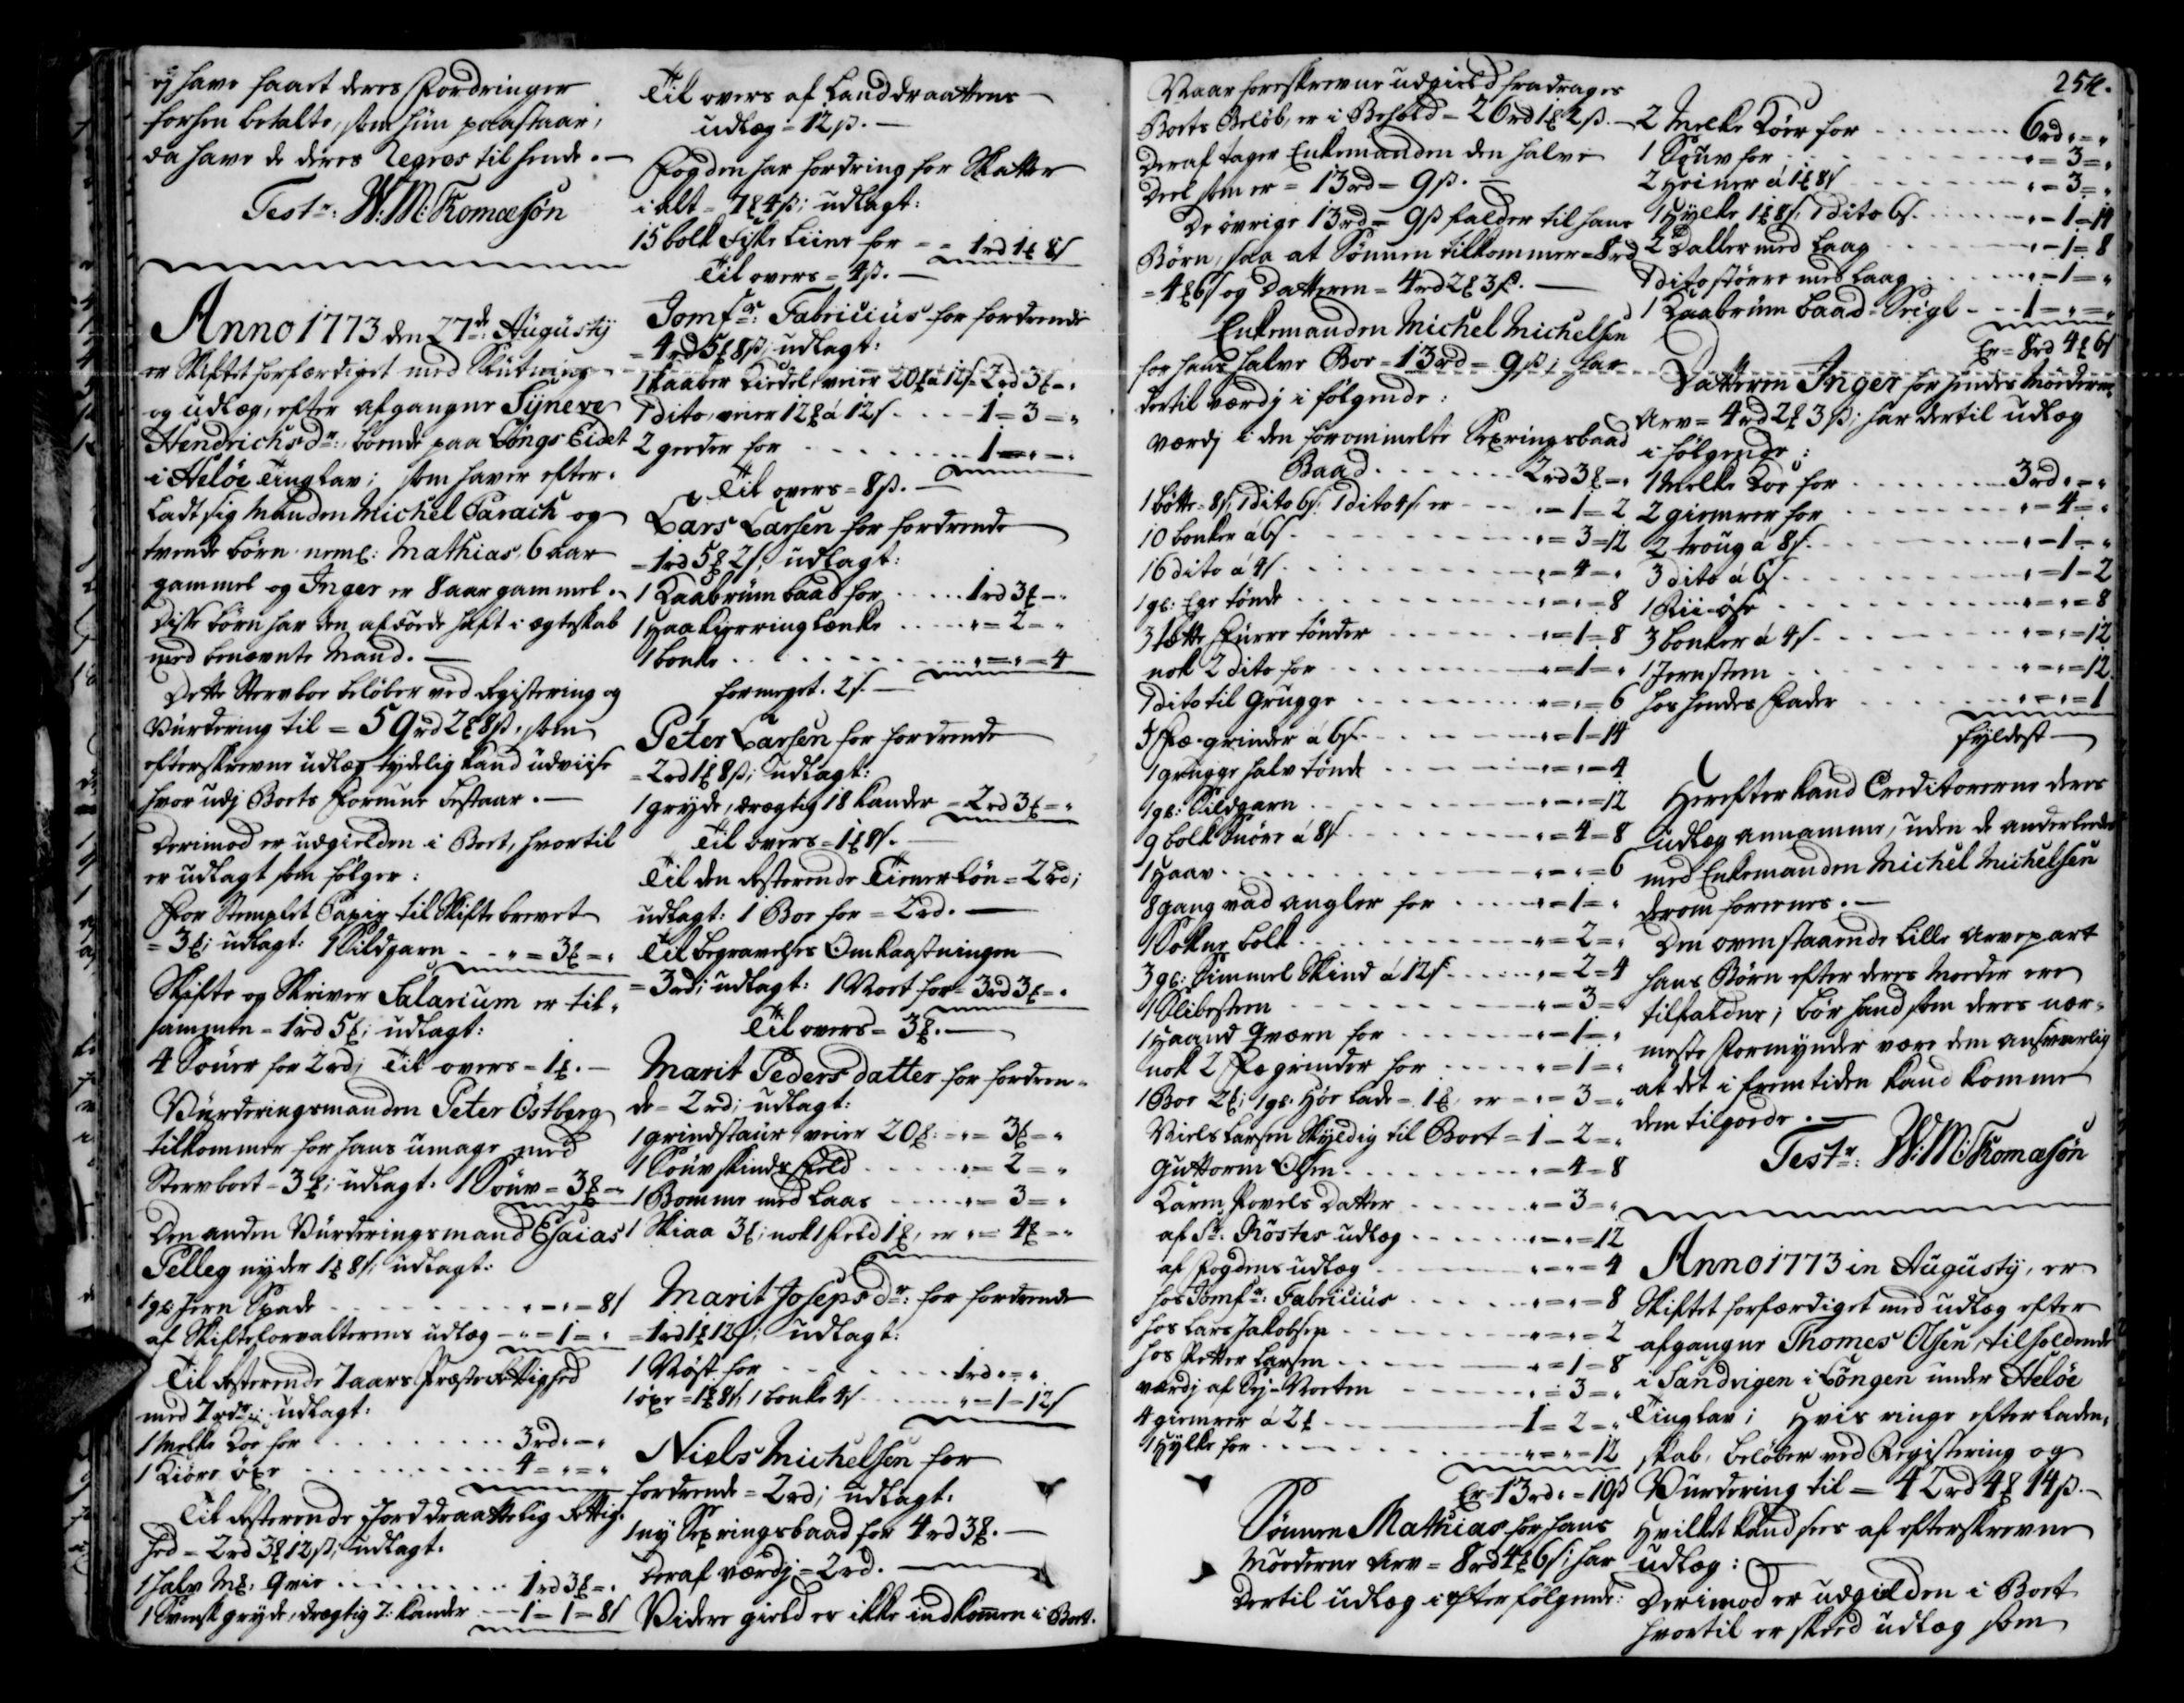 ej have faaet deres Fordringer
forhen betalte, som hun paastaar,
da have de deres Regres til hende.
Test: W: M: Thomæsøn
Anno 1773 den 27de Augustÿ
er Skiftet forfærdiget med Slutning
og udlæg, efter afgangne Sÿneve
Hendrichsdr: boende paa Longs Eidet
i Heløe Tinglav; som haver efter-
ladt sig Manden Michel Parach og
tvende børn neml: Mathias 6 aar
gammel og Inger er 8 aar gammel.
Disse børn har den afdøde haft i ægteskab
med benævnte Mand.
Dette Sterboe beløber ved Registering og
Vurdering til = 59rd 2 8ß, som
efterskrevne udlæg tydelig kand udviise
hvor udj Boets Formue bestaar.
Derimod er udgielden i Boet, hvortil
er udlagt som følger:
For Stemplet Papir til Skiftebrevet
= 3; udlagt: 1 Sildgarn - " = 3 = "
Skifte og Skriver Salarium er til-
sammen = 1rd 5; udlagt:
4 Souer for 2rd; Til overs = 1.
Vurderingsmanden Peter Østberg
tilkommer for hans umage med
Stervboet = 3; udlagt: 1 Souv = 3
Den anden Vurderingsmand Esaias
Pelleg nyder 1 8ß; udlagt:
1 gl: Jern Spade " = " = 8ß
af Skifteforvalterens udlæg " = 1 = "
Til resterende 7 aars Præste Rettighed
med 7rdr; udlagt:
1 Melke Koe for 3rd " = "
1 Kiøre øxe 4 = " = "
Til resterende Jorddraattelig Rettig-
hed = 2rd 3 12ß; udlagt:
1 halv Qvie 1rd 3 = "
1 Svensk gryde, drægtig 7 kander 1 = 1 = 8ß
Til overs af Landdraattens
udlæg = 12ß.
Fogden har fordring for Skatter
i alt = 7 4ß; udlagt:
15 bolk Fiske Liine for = 1rd 1 8ß
Til overs = 4ß.
Jomfr: Fabricius for fordrende
= 4rd 5 8ß; udlagt:
1 kaaber Kiedel, veier 20 á 12ß = 2rd 3 = "
1 dito, veier 12 á 12ß 1 = 3 = "
2 geeder for 1 = " = "
Til overs = 8ß.
Lars Larsen for fordrende
= 1rd 5 2ß; udlagt:
1 Kaabrum baad for 1rd 3 = "
1 Haakierringlænke " = 2 = "
1 bonke " = " = 4
formeget. 2ß.
Peter Larsen for fordrende
= 2rd 1 8ß; udlagt:
1 gryde, drægtig 18 kander = 2rd 3 = "
Til overs = 1 8ß.
Til den resterende Tienerløn = 2rd;
udlagt: 1 Boe for = 2rd.
Til begravelses Omkaastningen
= 3rd; udlagt: 1 Noet for = 3rd 3 = "
Til overs = 3.
Marit Peders datter for fordren-
de = 2rd; udlagt:
1 grindstaur, veier 20: " = 3 = "
1 Souvskinds Feld " = 2 = "
1 Bomme med Laas " = 3 = "
1 Skiaa 3; nok 1 Feld 1, er " = 4 = "
Marit Josepsdr: for fordrende
= 1rd 1 12ß; udlagt:
1 Nøst for 1rd " = "
1 øxe = 1 8ß, 1 bonke 4ß " = 1 = 12ß
Niels Michelsen for
fordrende = 2rd; udlagt:
1 ny Sexringsbaad for 4rd 3.
deraf værdj = 2rd.
Videre gield er ikke indkommen i Boet.
254.
Naar foreskrevne udgield fradrages
Boets Beløb, er i Behold = 26rd 1 2ß.
Deraf tager Enkemanden den halve
deel som er = 13rd = 9ß.
De øvrige 13rd = 9ß falder til hans
Børn, saa at Sønnen tilkommer = 8rd
= 4 6ß og Datteren = 4rd 2 3ß.
Enkemanden Michel Michelsen
for hans halve Boe = 13rd = 9ß; har
dertil værdj i følgende:
Værdj i den forommelte Sexringsbaad
Baad 2rd 3 = "
1 bøtte = 8ß, 1 dito 6ß, 1 dito 4ß er " = 1 = 2
10 bonker á 6ß " = 3 = 12
16 dito á 4ß " = 4 = "
1 gl: Ege tønde " = " = 8
3 tette Furre tønder " = 1 = 8
nok 2 dito for " = 1 = "
1 dito til Grugge " = " = 6
5 Fæ-grinder á 6ß " = 1 = 14
1 grugge halv tønde " = " = 4
1 gl: Sildgarn " = " = 12
9 bolk Snøre á 8ß " = 4 = 8
1 Haav " = " = 6
8 gang vad angler for " = 1 = "
1 Sokne bolk " = 2 = "
3 gl: Simmel Skind á 12ß " = 2 = 4
1 Slibesteen " = 3 = "
1 Haand Qværn for " = 1 = "
nok 2 Fægrinder for " = 1 = "
1 Boe 2; 1 gl: Høe Lade = 1, er " = 3 = "
Niels Larsen Skyldig til Boet = 1 = 2 = "
Guttorm Olsen " = 4 = 8
Karen Povels Datter " = 3 = "
af Sr. Røstes udlæg " = " = 12
af Fogdens udlæg " = " = 4
hos Jomfr: Fabricius " = " = 8
hos Lars Jakobsen " = " = 2
hos Petter Larsen " = 1 = 8
værdj af Sej-Noeten " = 3 = "
4 giemrer á 2 1 = 2 = "
1 Hylke for " = " = 12
Er = 13rd " = 10ß
Sønnen Mathias for hans
Moederne Arv = 8rd 4 6ß; har
dertil udlæg i efterfølgende:
2 Melke Kiør for 6rd " = "
1 Souv for " = 3 = "
2 Hviner á 1 8ß " = 3 = "
1 Hylke 1 8ß, 1 dito 6ß " = 1 = 14
2 Daller med Laag " = 1 = 8
1 dito større med Laag " = 1 = "
1 Kaabrum Baad-Seigl 1 = " = "
Er = 8rd 4 6ß
Datteren Inger for hendes Moderne
Arv = 4rd 2 3ß; har dertil udlæg
i følgende:
1 Melke Koe for 3rd " = "
2 giemrer for " = 4 = "
2 troug á 8ß " = 1 = "
3 dito á 6ß " = 1 = 2
1 Rii-øse " = " = 8
3 bonker á 4ß " = " = 12
1 Jernsteen " = " = 12
hos hendes Fader " = " = 1
fyldest
Herefter kand Creditorerne deres
udlæg annamme, uden de anderledes
med Enkemanden Michel Michelsen
derom foreenes.
Den ovenstaaende lille Arvepart
hans Børn efter deres Moeder ere
tilfaldne; bør hand som deres nær-
meste Formynder være dem ansvarlig
at det i fremtiden kand komme
dem tilgode.
Testr: W: M: Thomæsøn
Anno 1773 in Augustÿ, er
Skiftet forfærdiget med udlæg efter
afgangne Thomes Olsen, tilholdende
i Sandvigen i Longen under Heløe
Tinglav; Hvis ringe efterladen-
skab, beløber ved Registering og
Vurdering til = 42rd 4 14ß.
Hvilket kand sees af efterskrevne
udlæg:
Derimod er udgielden i Boet
hvortil er skeed udlæg som